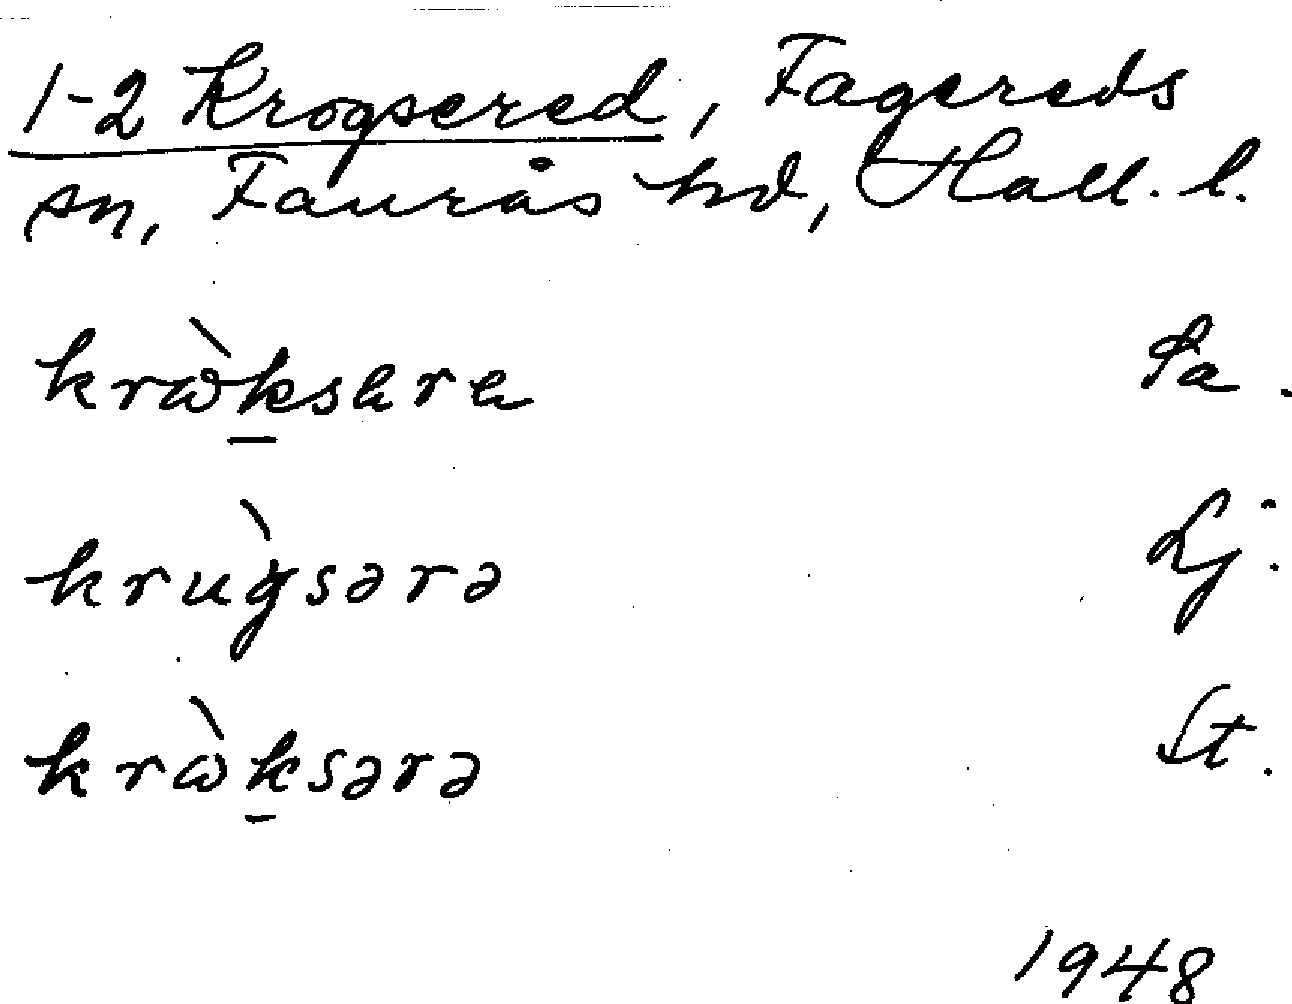 1-2 Krogsered, Fagereds
sn, Faurås hd, Hall. l.
krɷ̀k̠sara Sa.
krùgsərə Lj.
krɷ̀k̠sərə St.
1948